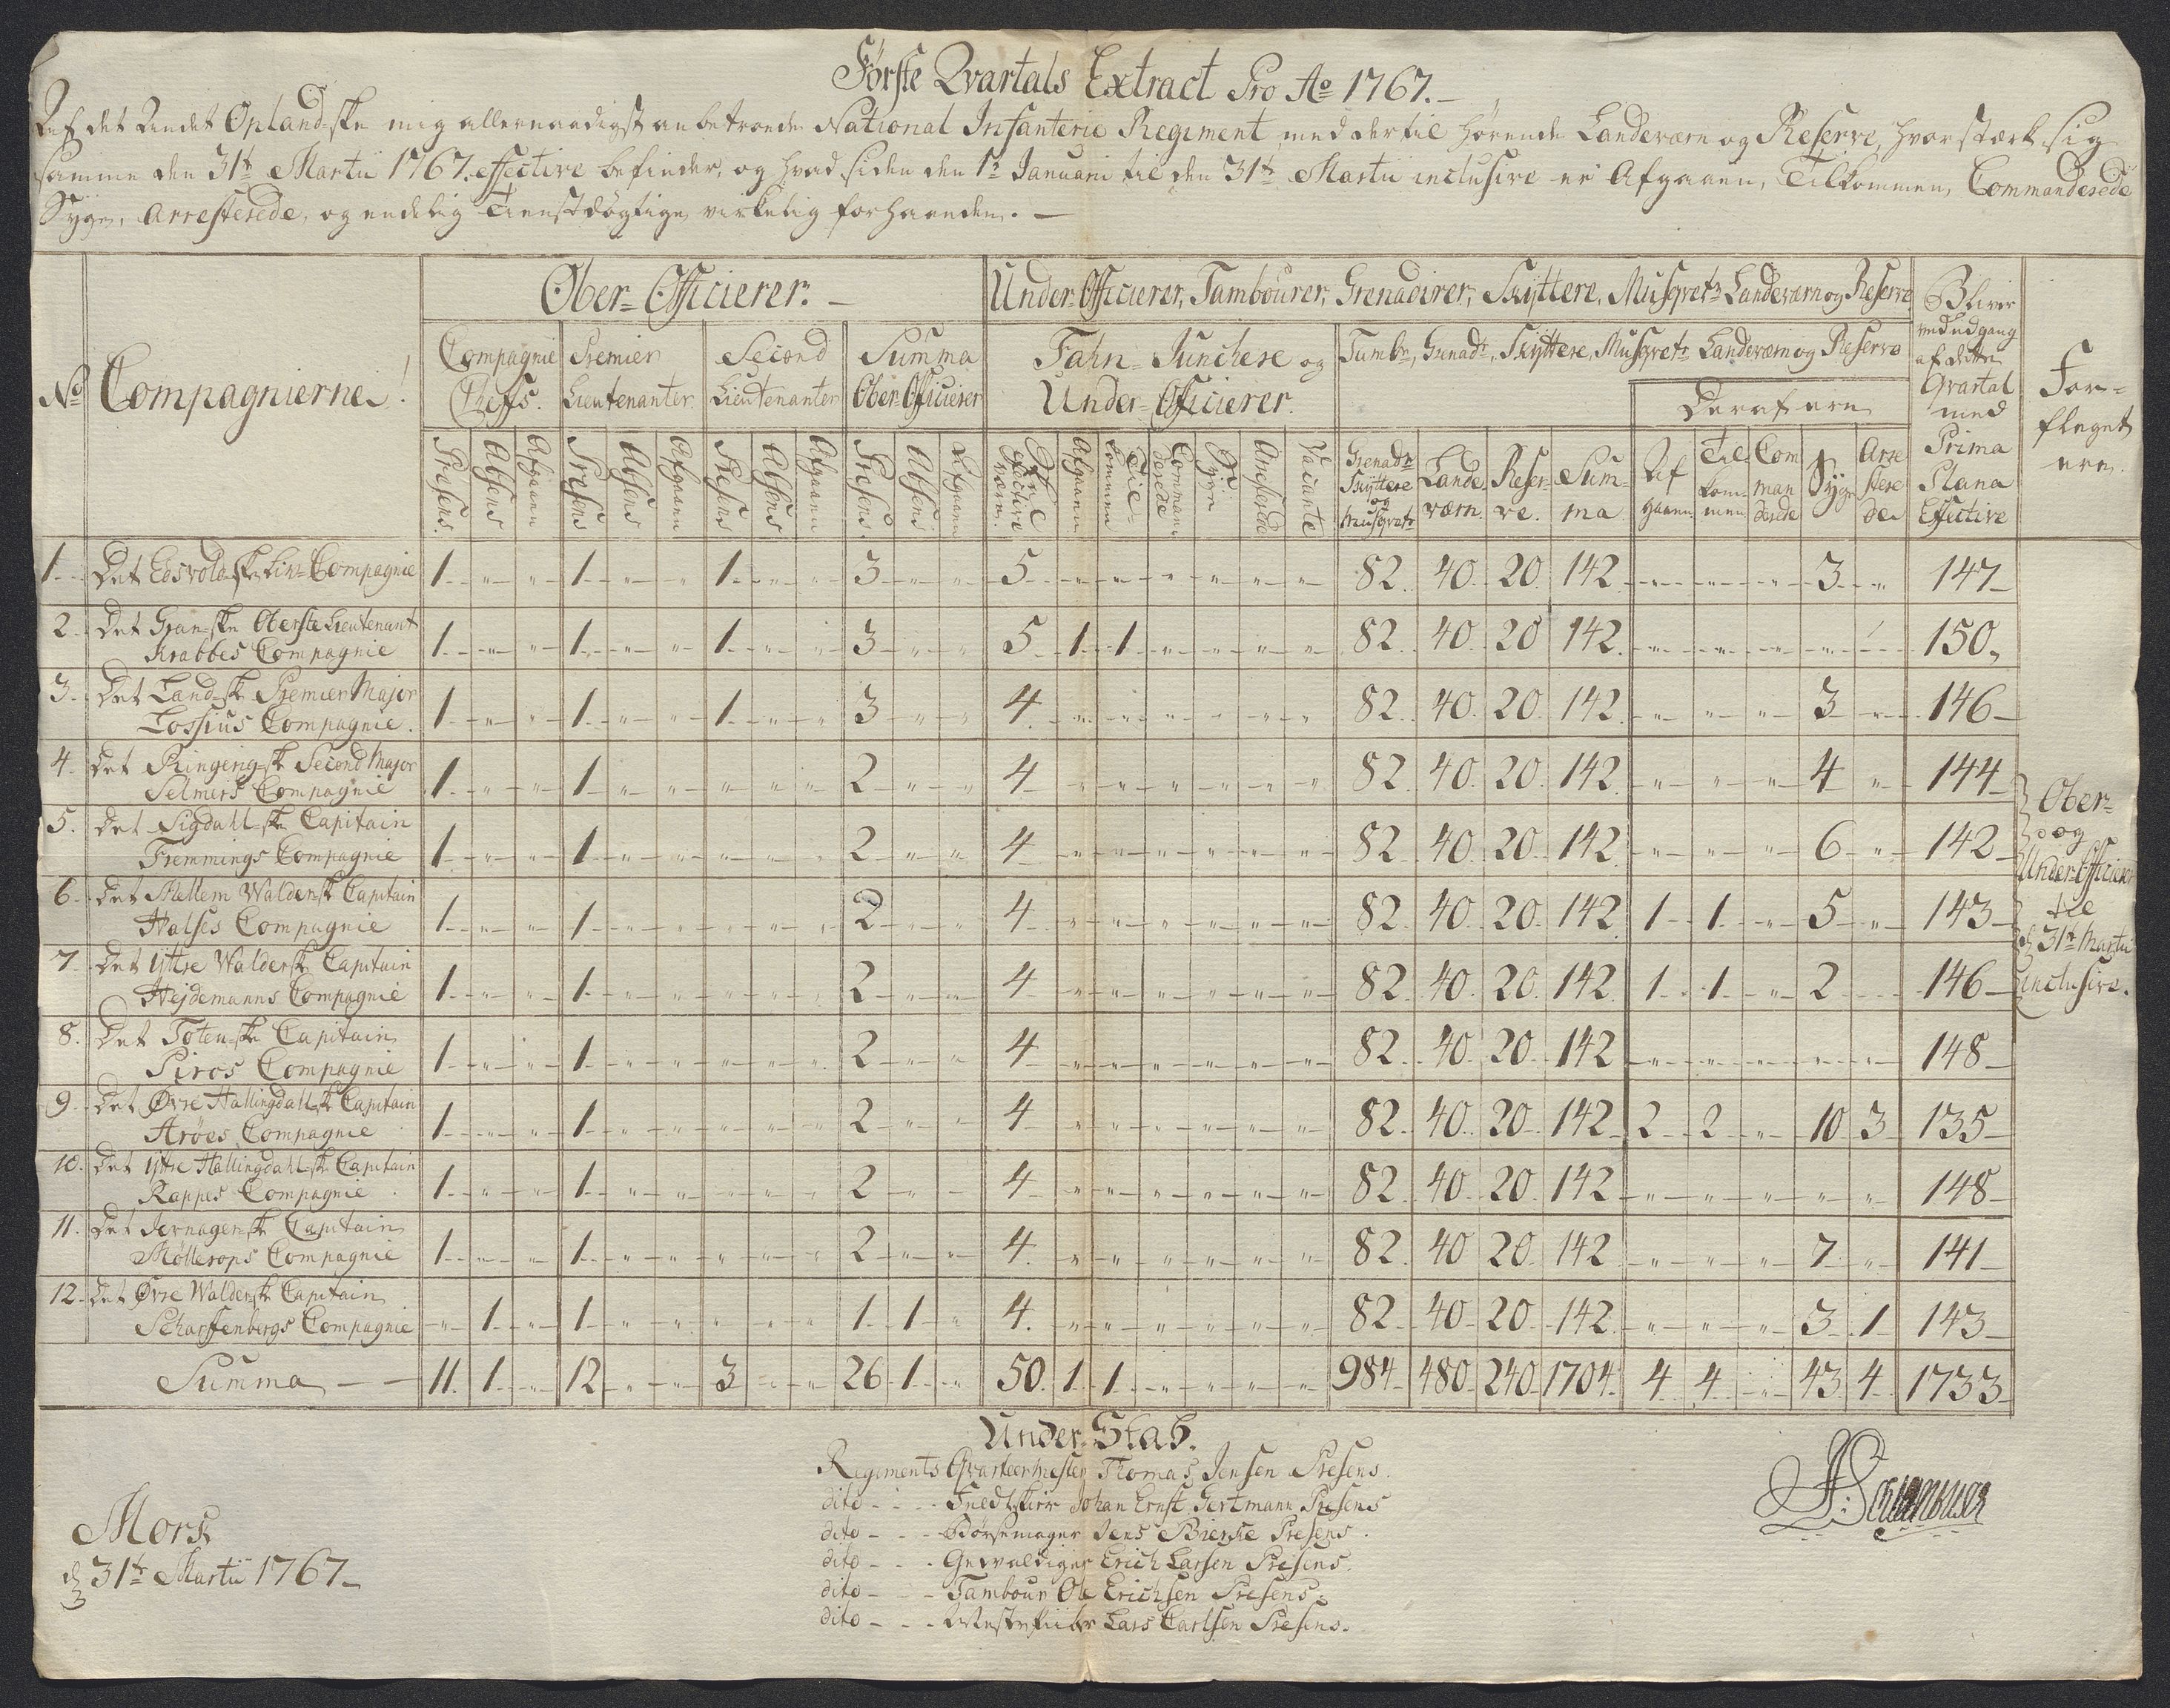 Første Qvartals Extract Pro Ao 1767.
Af det Andet Opland-ske mig allernaadigst anbetroede National Infanterie Regiment, med dertil hørende Landeværn og Reserve, hvor stærk sig
samme den 31te Martii 1767. effective befinder, og hvad siden den 1te Januarii til den 31te Martii inclusive er Afgaaen, Tilkommen, Commanderede
Syge, Arresterede, og endelig Tienstdøgtige virkelig forhaanden. —
No Compagnierne. Ober-Officierer. — Under-Officierer, Tambourer, Grenadirer, Skyttere, Musqvetr Landeværn og Reserve Bliver ved udgang af dette Qvartal med Prima Plana Effective For-fleget ere.
Compagnie Cheffs. Premier Lieutenanter Second Lieutenanter Summa Ober-Officierer Fahn-Junchere og Under-Officierer. Tambr, Grenadr, Skyttere, Musqvetr Landeværn og Reserve
Deraf ere
Presens. Absens Afgaaen Presens Absens Afgaaen Presens Absens Afgaaen Presens. Absens. Afgaaen Effective Afgaaen Tilkommen Commanderede Syge Arresterede Vacante Grenadr Skyttere og Musqvetr Landeværn. Reserve. Summa Afgaaen Tilkommen Commanderede Syge Arresterede
1. Det Edsvold-ske Liv-Compagnie 1 " " 1 " " 1 " " 3 " " 5 " " " " " " 82. 40. 20. 142. " " " 3 " 147
2. Det Gran-ske Oberste Lieutenant Krabbes Compagnie 1 " " 1 " " 1 " " 3 " " 5 1 1 " " " " 82. 40. 20 142. " " " " " 150
3. Det Land-ske Premier Major Lossius Compagnie. 1 " " 1 " " 1 " " 3 " " 4 " " " " " " 82. 40. 20. 142. " " " 3 " 146
4. Det Ringerig-ske Second Major Selmers Compagnie 1 " " 1 " " " " " 2 " " 4 " " " " " " 82. 40. 20. 142. " " " 4 " 144
5. Det Sigdahl-ske Capitain Fremmings Compagnie 1 " " 1 " " " " " 2 " " 4 " " " " " " 82. 40. 20. 142 " " " 6 " 142
6. Det Mellem Walders-ske Capitain Halses Compagnie 1 " " 1 " " " " " 2 " " 4 " " " " " " 82. 40. 20. 142 1 1 " 5 " 143
7. Det Yttre Walders-ske Capitain Hejdemanns Compagnie 1 " " 1 " " " " " 2 " " 4 " " " " " " 82. 40. 20. 142 1 1 " 2 146
8. Det Toten-ske Capitain Piros Compagnie 1 " " 1 " " " " " 2 " " 4 " " " " " " 82. 40. 20. 142 " " " " " 148
9. Det Øvre Hallingdahl-ske Capitain Arøes Compagnie 1 " " 1 " " " " " 2 " " 4 " " " " " " 82. 40. 20. 142 2 2 " 10 3 135
10. Det Yttre Hallingdahl-ske Capitain Rappes Compagnie 1 " " 1 " " " " " 2 " " 4 " " " " " " 82. 40. 20. 142 " " " " " 148
11. Det Jevnager-ske Capitain Møllerops Compagnie 1 " " 1 " " " " " 2 " " 4. " " " " " " 82. 40 20. 142 " " " 7 " 141
12. Det Øvre Walders-ske Capitain Scharffenbergs Compagnie " 1 " 1 " " " " " 1 1 " 4. " " " " " " 82. 40. 20. 142 " " " 3 1 143
Summa — — 11. 1 " 12 " " 3 " " 26 1 " 50. 1 1 " " " " 984. 480. 240. 1704. 4 4 " 43 4 1733
Ober-
og
Under-Officierer
til
d 31te Martii
inclusive.
Under-Stab.
Regiments Qvarteermester Thomas Jensen Presens.
dito - - - Feldtskier Johan Ernst Gertmann Presens
dito - - - Bøssemager Jens Bierke Presens.
dito - - - Gevaldiger Erich Larsen Presens.
dito - - - Tambour Ole Erichsen Presens.
dito - - - Lars Carlsen Presens.
Mors
d 31te Martii 1767